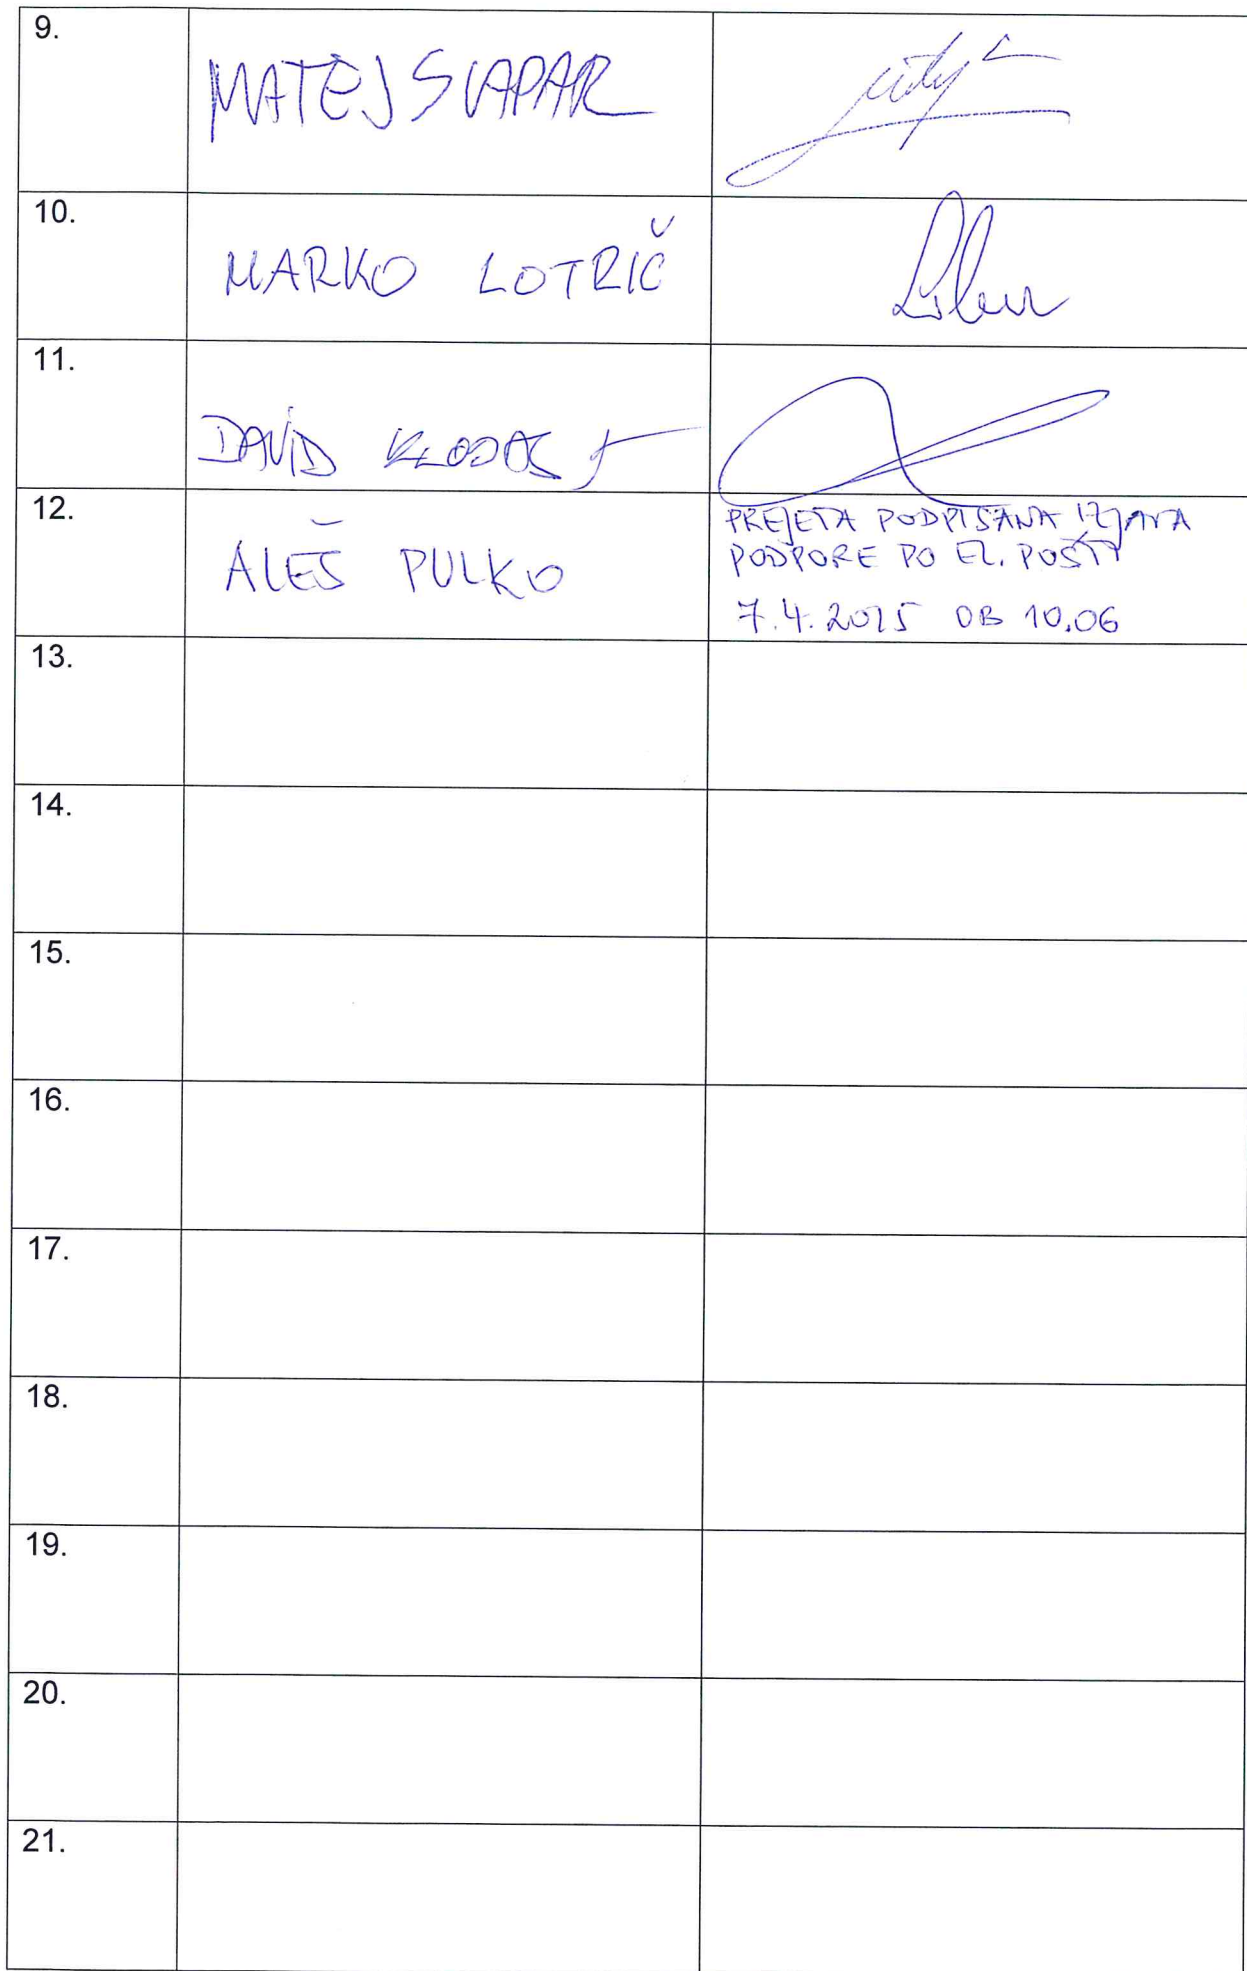 9. MATEJ SVAPAR
10. MARKO LOTRIČ
11. DAVID
12. ALEŠ PULKO
PREJETA PODPISANA IZJAVA
PODPORE PO EL. POŠTI
7.4.2015 OB 10.06
13.
14.
15.
16.
17.
18.
19.
20.
21.